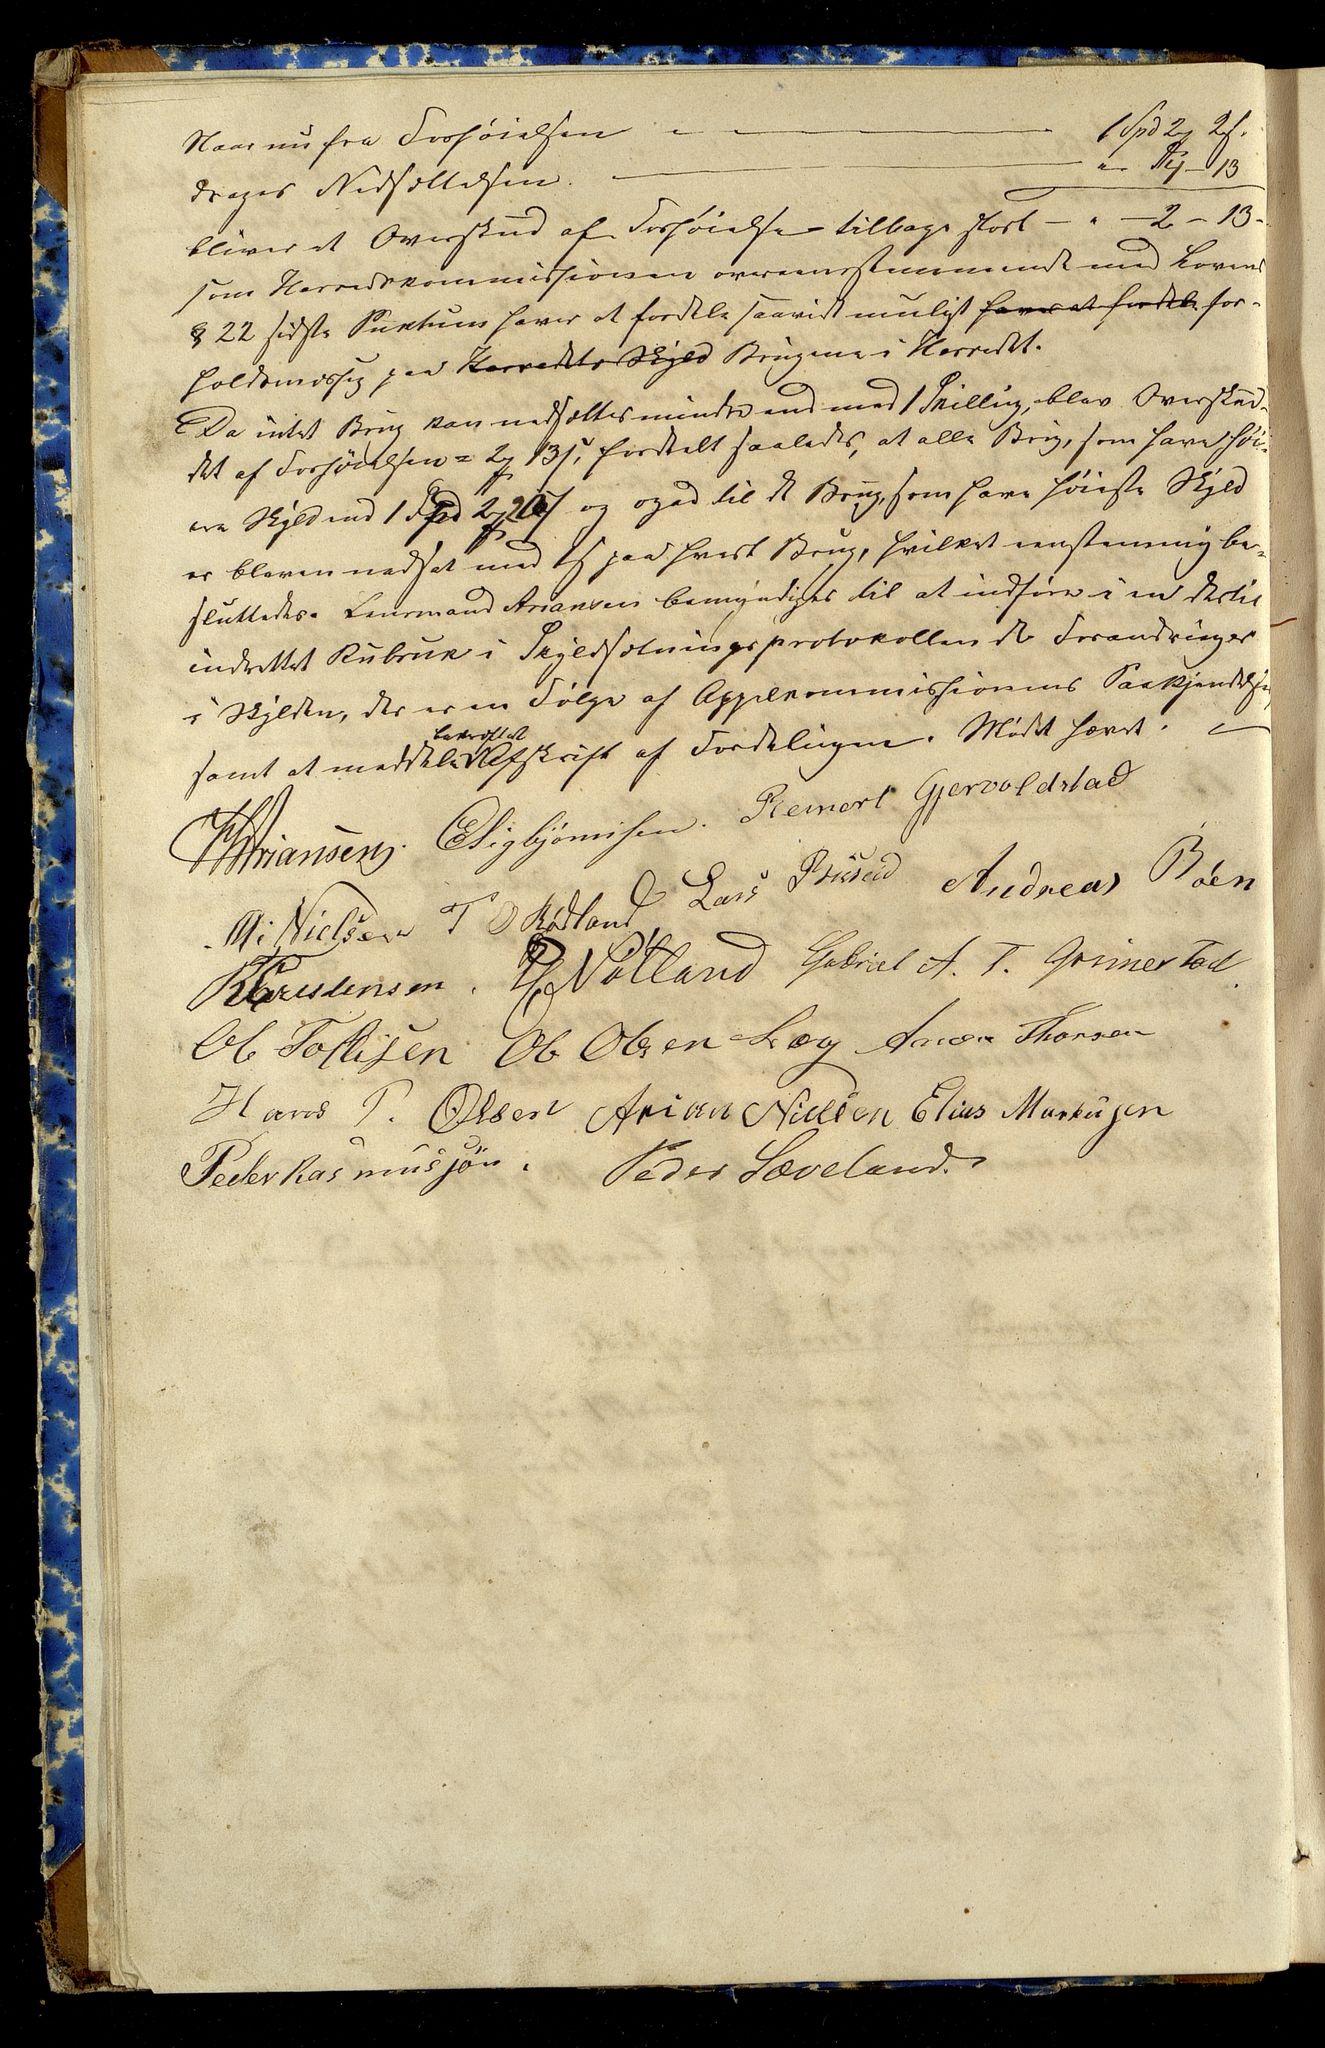 Naar nu fra Forhøielsen " — 1 Spd 2 2 s.
drages Nedsættelsen. — " 13
bliver et Overskud af Forhøielse tilbage stort — " — 2 — 13 -
som Herredskommissionen overeensstemmende med Lovens
§ 22 sidste Punktum haver at fordele saavidt muligt haver at fordele for-
holdsmæssig paa Herredets Skyld Brugene i Herredet.
Da intet Brug kan nedsættes mindre end med 1 Skilling, blev Overskud-
det af Forhøielsen = 2 13 s, fordeelt saaledes, at alle Brug, som have høi-
ere Skyld end 1 Spd 2 20 s og opad til de Brug, som have høieste Skyld
er bleven nedsat med 1 s paa hvert Brug, hvilket eenstemmig be-
sluttedes. Lensmand Ariansen bemyndiges til at indføre i en dertil
indrettet Rubruk i Skyldsætningsprotokollen de Forandringer
i Skylden, der er en Følge af Appelkommissionens Paakjendelse,
samt at meddele bekræftet Afskrift af Fordelingen. Mødet hævet.
Ariansen. E Sigbjørnsen. Reinert Gjervoldstad
Nielsen T O Rødland Lars Andreas Böen
Christensen. Nötland Gabriel A. T. Grimestad.
Ole Tollisen Ole Olsen Læg Thorsen
Hans T. Olsen Arian Nielsen Elias Markusen
Peder Rasmussøn. Peder Sæveland.